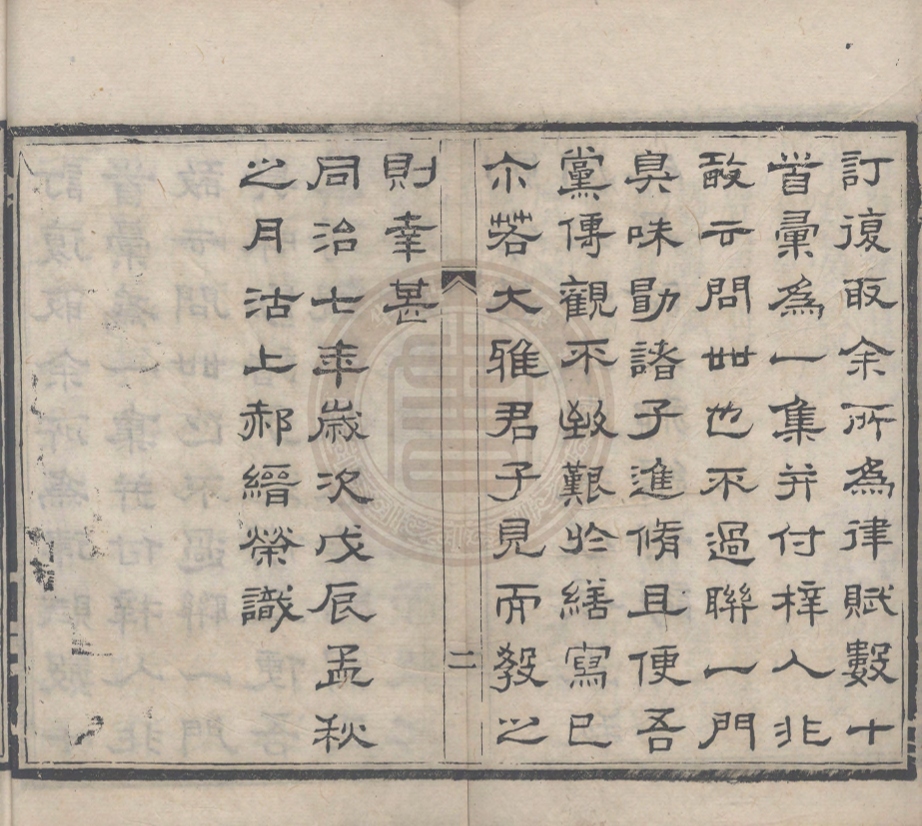 訂復取余所為律賦數十
首彚為一集并付梓人非
敢云問世也不過聯一門
臭味勖諸子進脩且便吾
黨傳觀不致艱於繕寫已
尒若大雅君子見而教之
二
則幸甚
同治七年歲次戊辰孟秋
之月沽上郝縉榮識